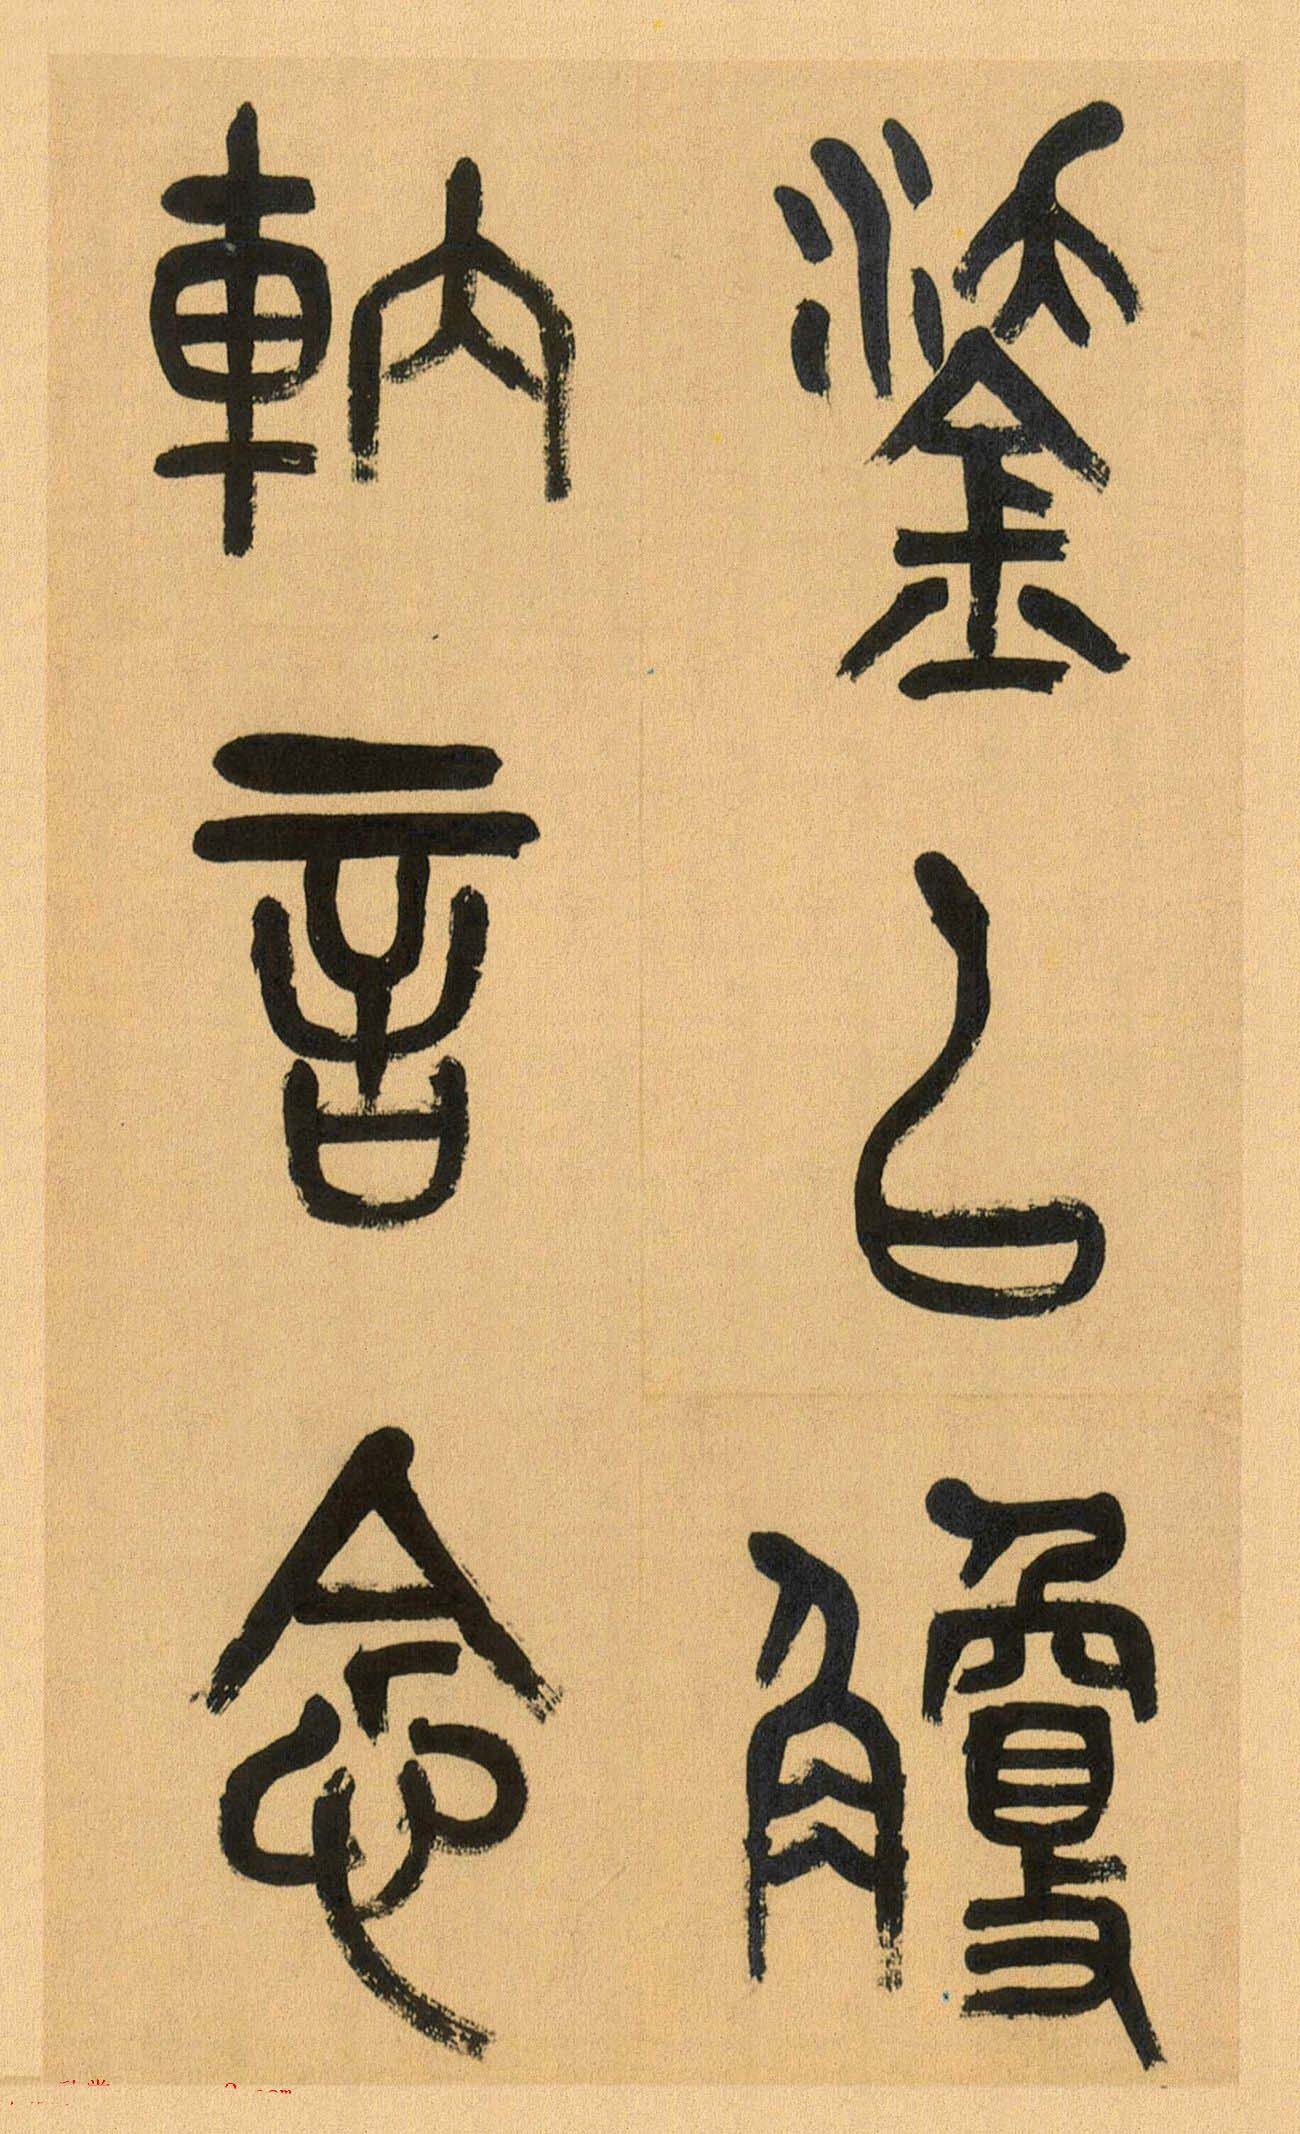 鋈以觼
軜言念